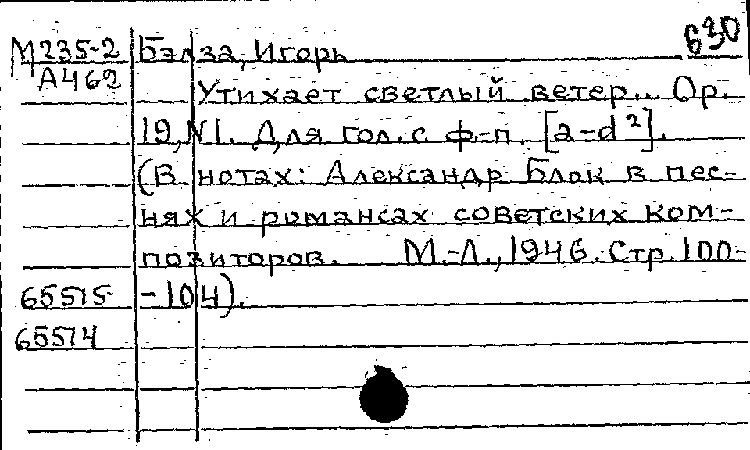 630
М235-2 Бэлза, Игорь
А462
Утихает светлый ветер... Ор.
19, N1. Для гол. с ф-п. [a-d²].
(В нотах: Александр Блок в пес-
нях и романсах советских ком-
позиторов. М.-Л., 1946. Стр. 100-
65515 -104).
65514